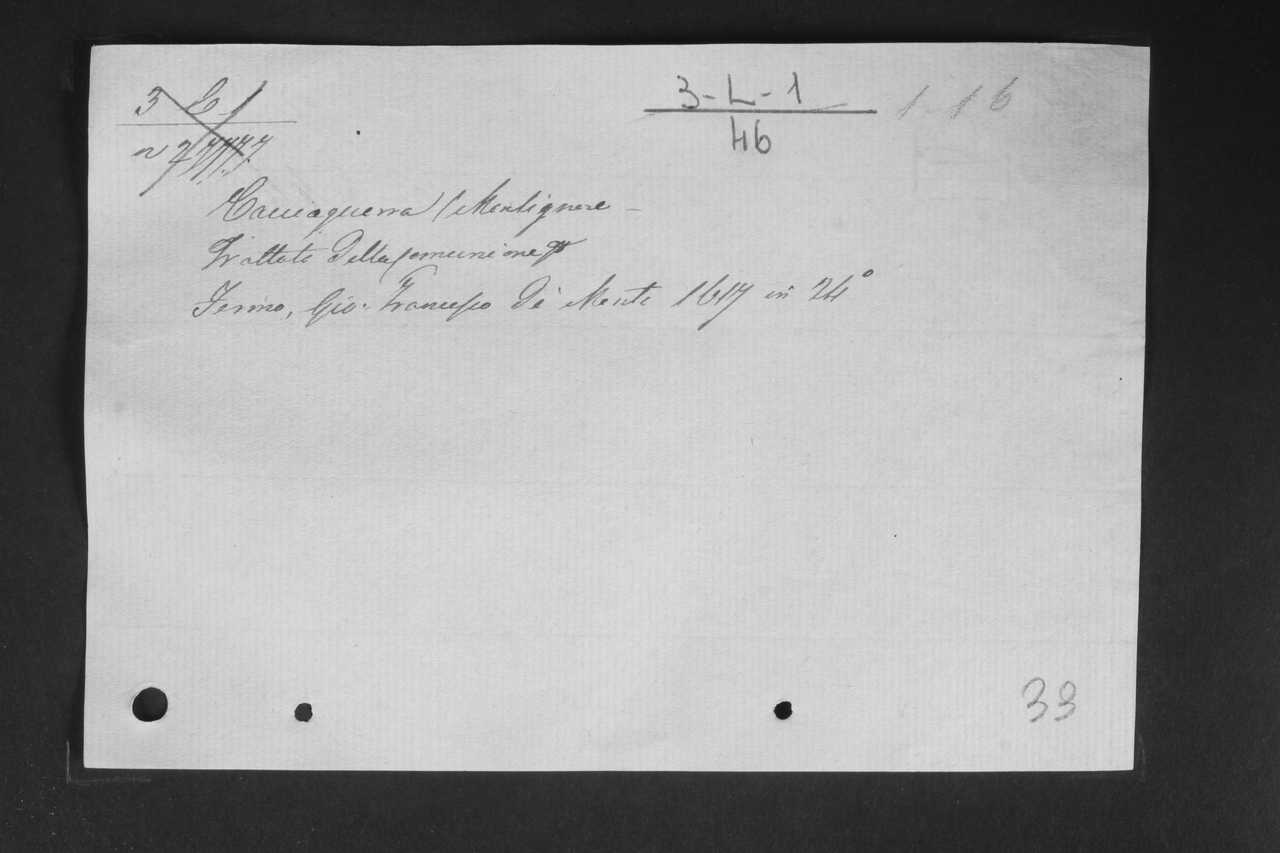 3 L 1
3-L-1
46
1 1 6
Cacciaguerra (Monsignore –
Trattato della comunione
Fermo, Gio. Francesco de Monti 1617 in 24°
33